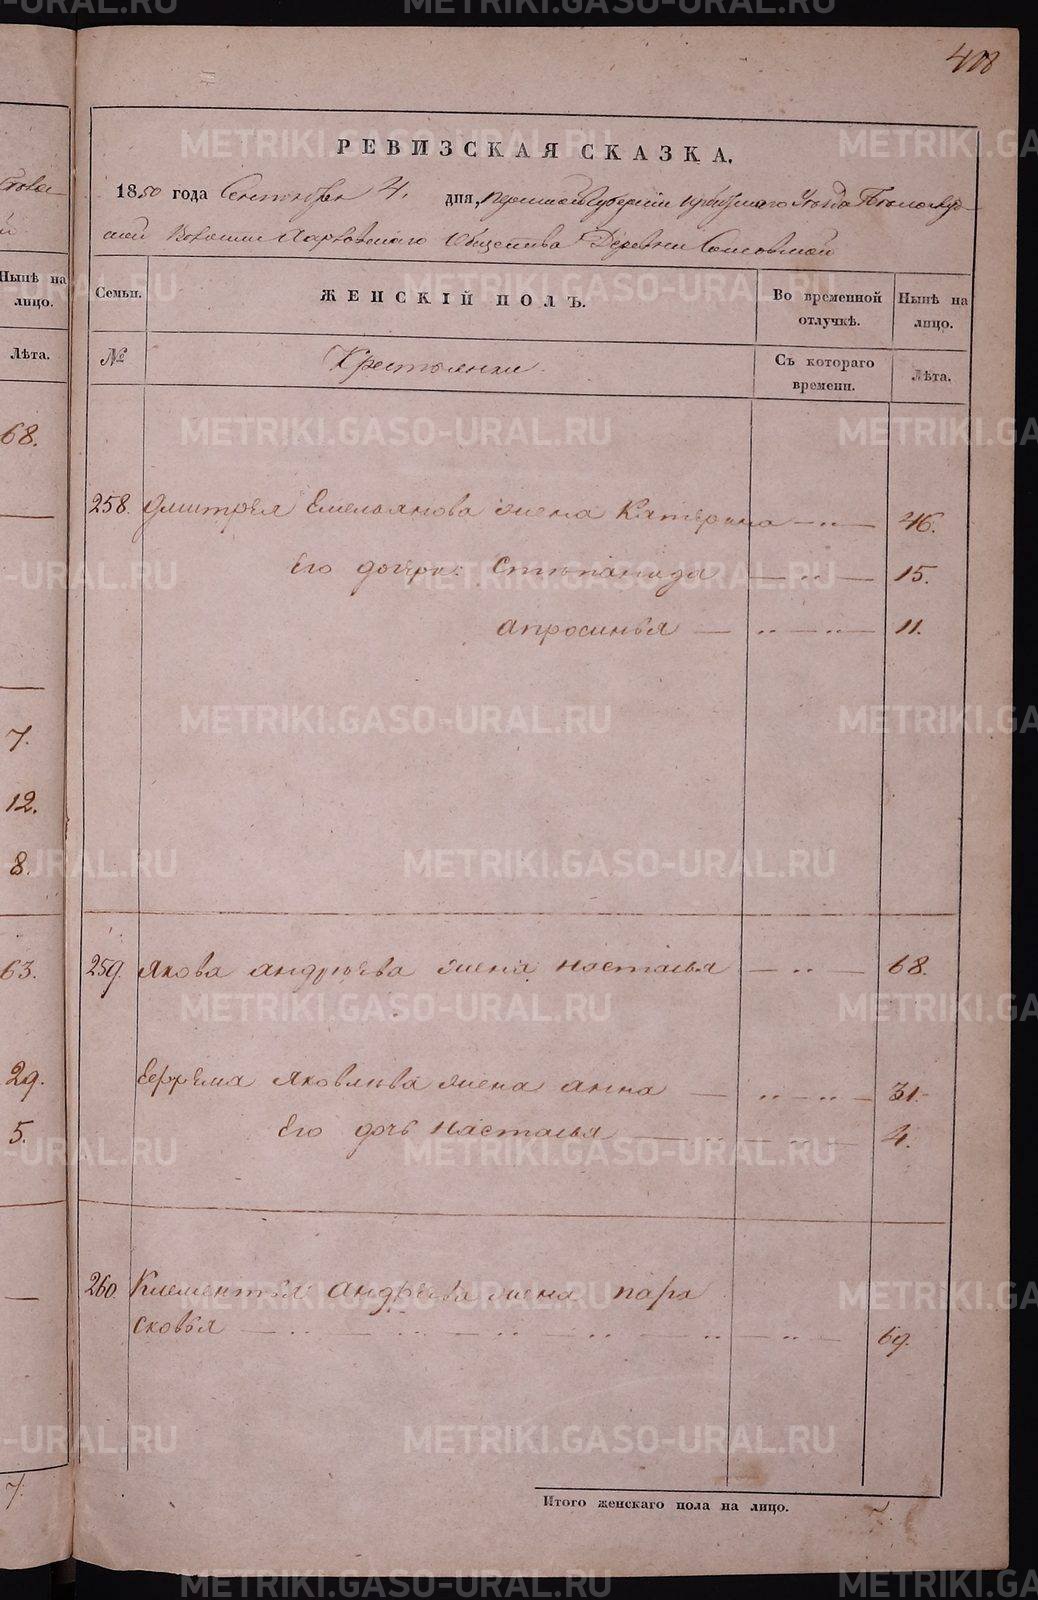 418
РЕВИЗСКАЯ СКАЗКА.
1850 года Сентября 4. дня, Пермской Губернии Ирбитского Уезда Белослуд-
ской Волости Харловского Общества Деревни
Семьи.
ЖЕНСКІЙ ПОЛЪ.
Во временной отлучкѣ.
Нынѣ на лицо.
№
Крестьянки
Съ котораго времени.
Лѣта.
258. Дмитрея Емельянова жена Катерина 46.
Его дочери: Степанида 15.
Апросинья 11.
259. Якова Андреева жена Настасья 68.
Ефрема Яковлева жена Анна 31.
Его дочь Настасья 4.
260. Клементья Андреева жена Пара
сковья 69.
Итого женскаго пола на лицо. 7.
Нынѣ на лицо.
Лѣта.
68.
7.
12.
8.
63.
29.
5.
7.
METRIKI.GASO-URAL.RU